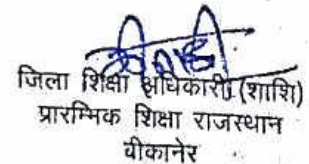 जिला शिक्षा अधिकारी (शाशि)
प्रारम्भिक शिक्षा राजस्थान
बीकानेर